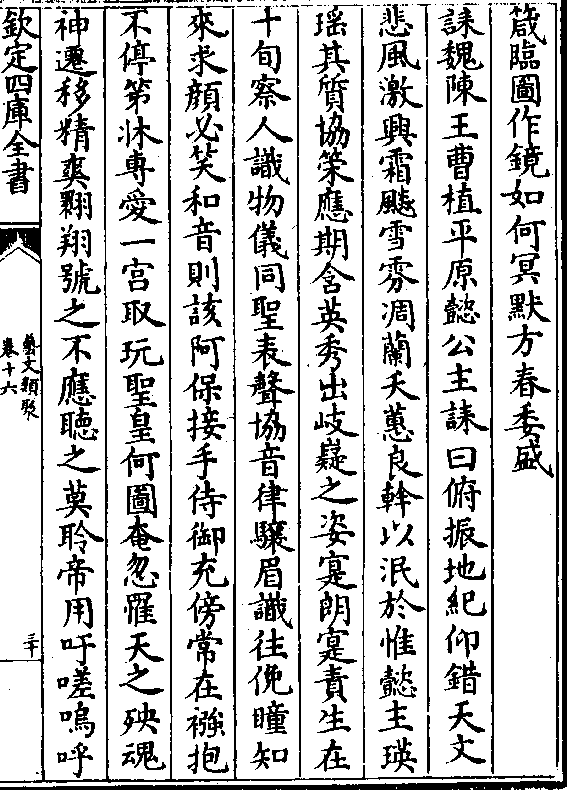 箴臨圖作鏡如何冥默方春委盛
誄魏陳王曹植平原懿公主誄曰俯振地紀仰錯天文
悲風激興霜飈雪雰凋蘭夭蕙良幹以泯於惟懿主瑛
瑶其質協策應期含英秀出岐嶷之姿寔朗寔責生在
十旬察人識物儀同聖表聲協音律驤眉識往俛瞳知
來求顔必笑和音則該阿保接手侍御充傍常在襁抱
不停第牀專愛一宫取玩聖皇何圖奄忽罹天之殃魂
神遷移精爽翺翔號之不應聽之莫聆帝用吁嗟嗚呼
欽定四庫全書
藝文類聚
卷十六
三十